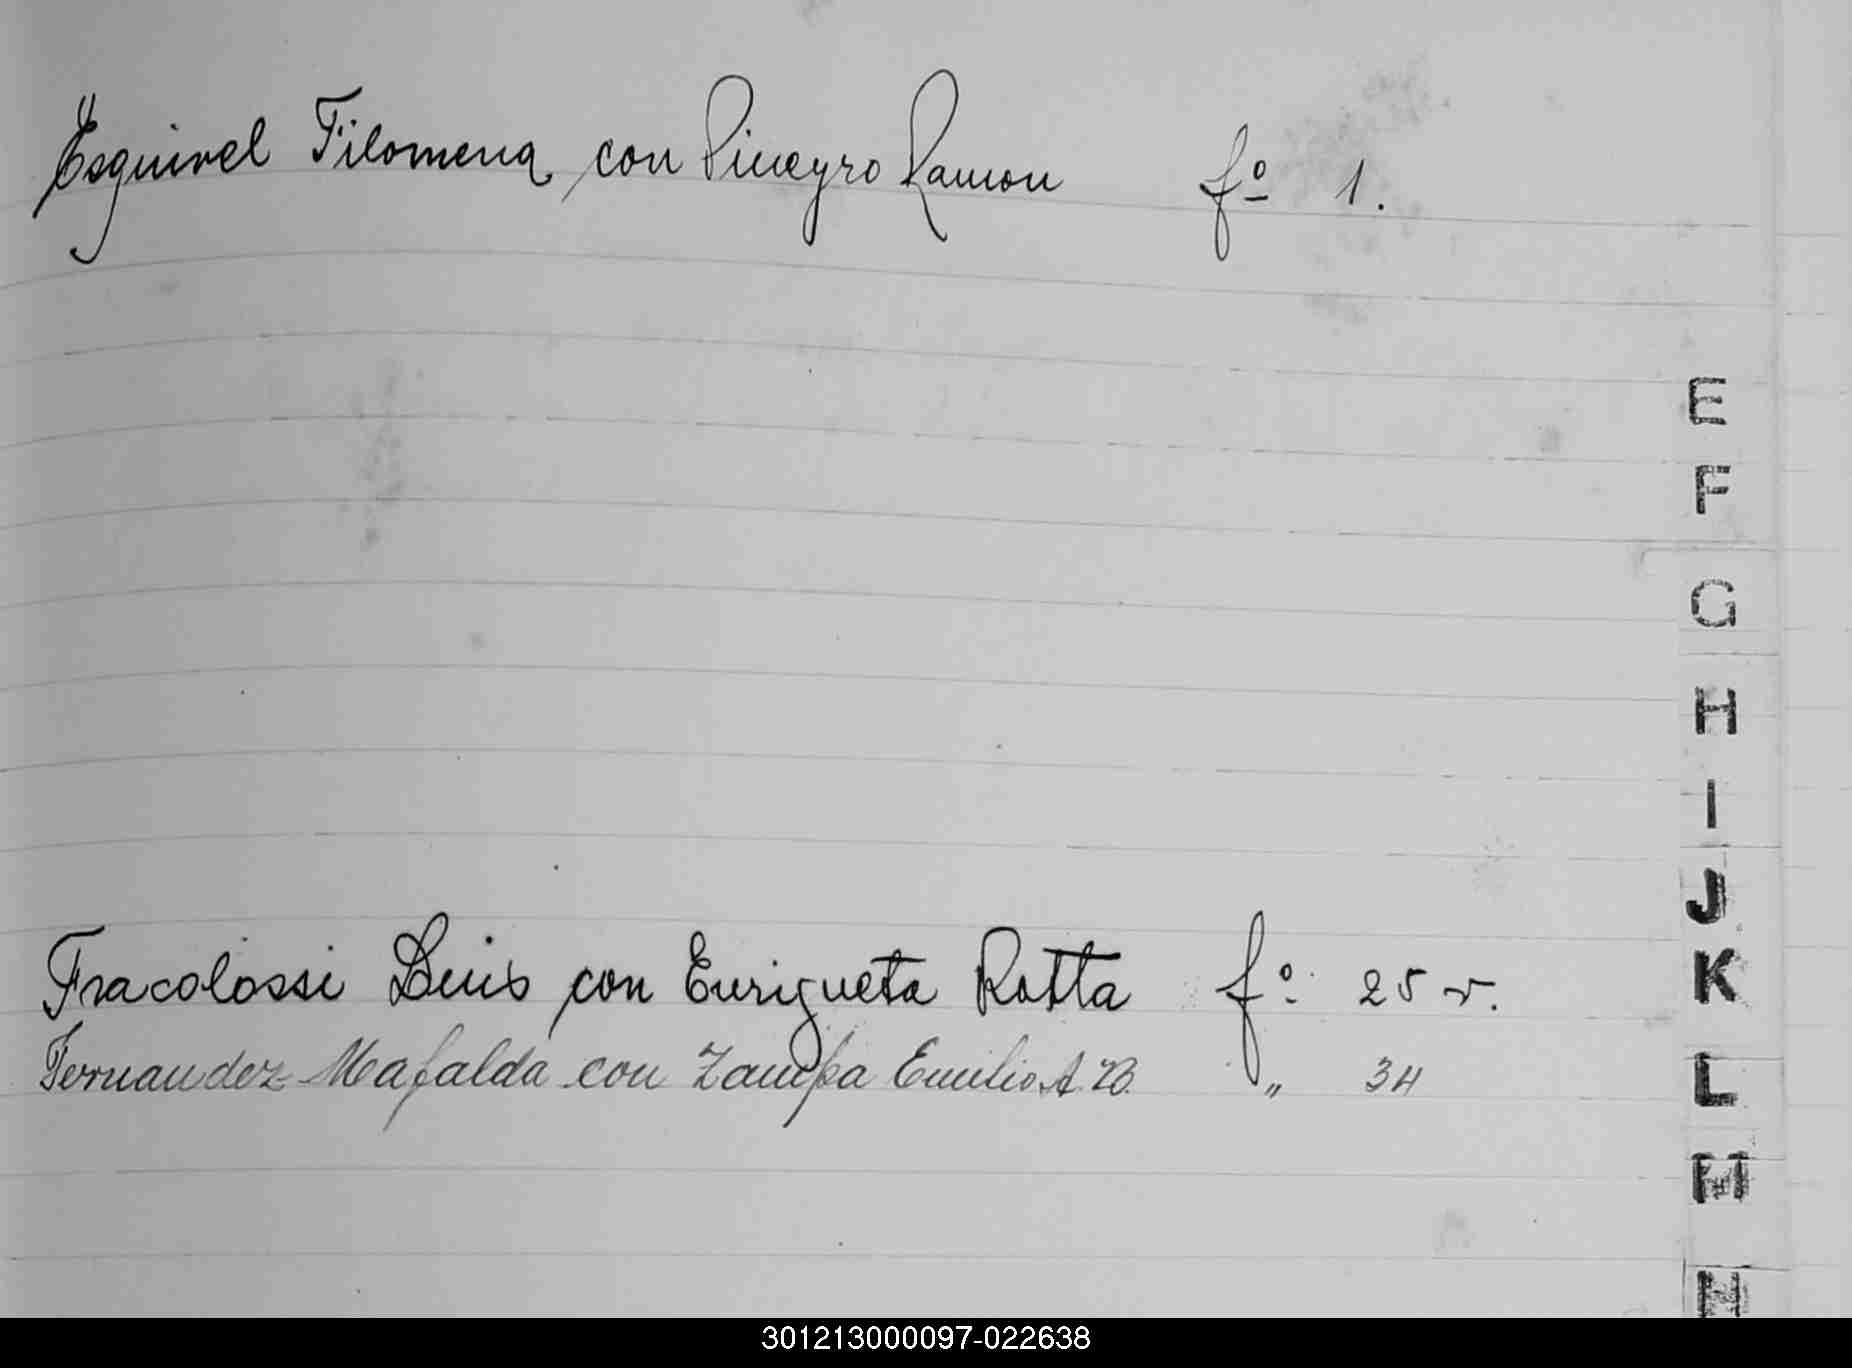 Esquivel Filomena con Pineyro Ramon fº 1.
E
F
G
H
I
J
K
L
M
N
Fracolossi Luis con Enriqueta Rotta fº 25 v.
Fernandez Mafalda con Zampa Emilio A. B. " 34
301213000097-022638